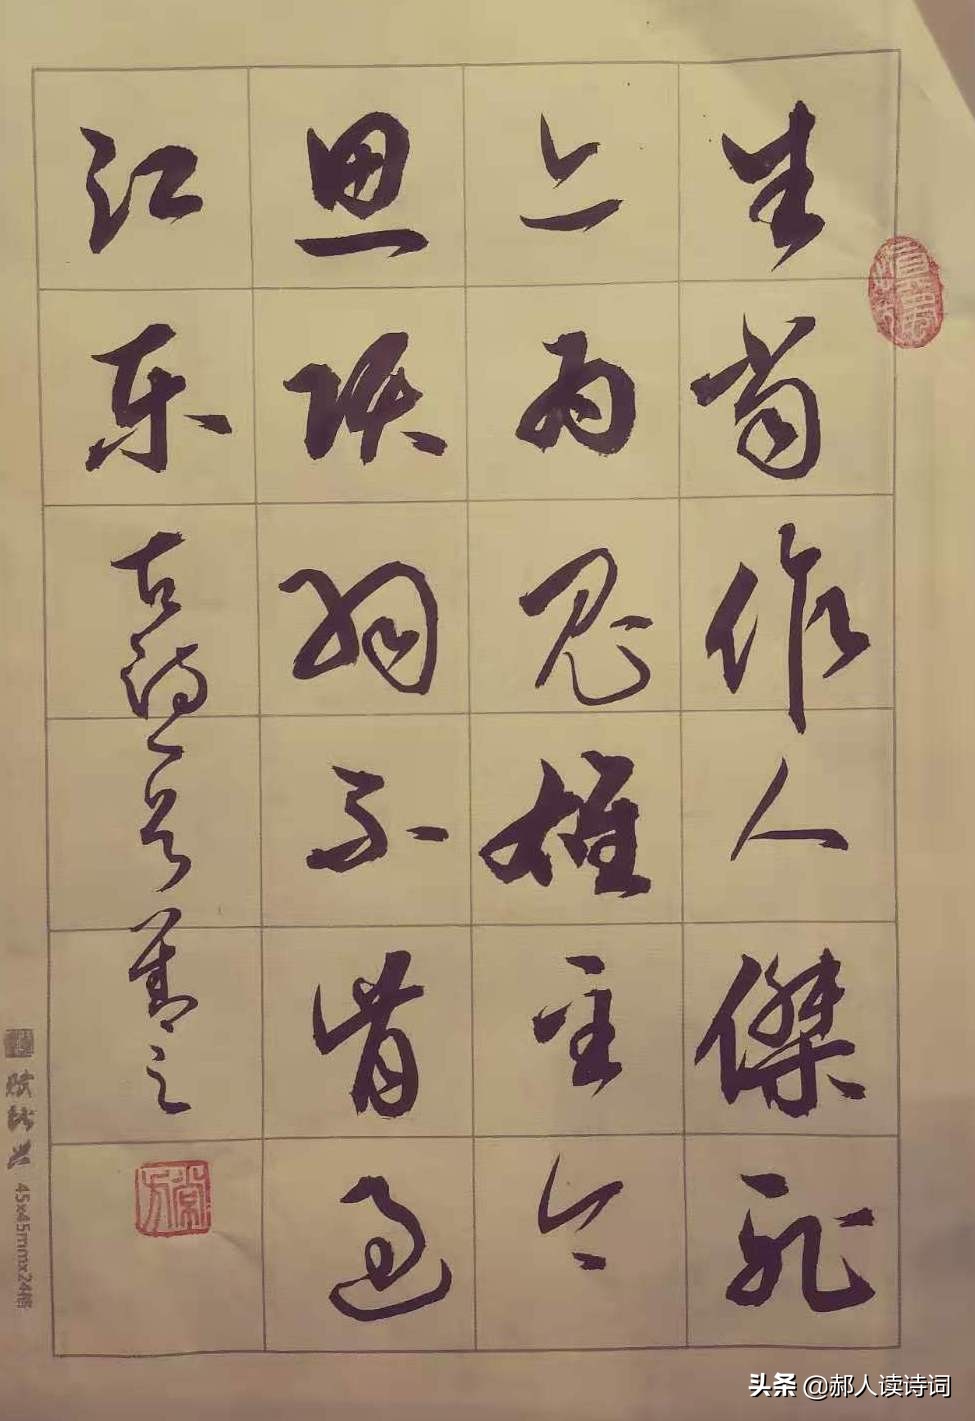 生当作人傑死
亦为鬼雄至今
思项羽不肯过
江东
古诗一首
45x45mmx24格
头条 @郝人读诗词